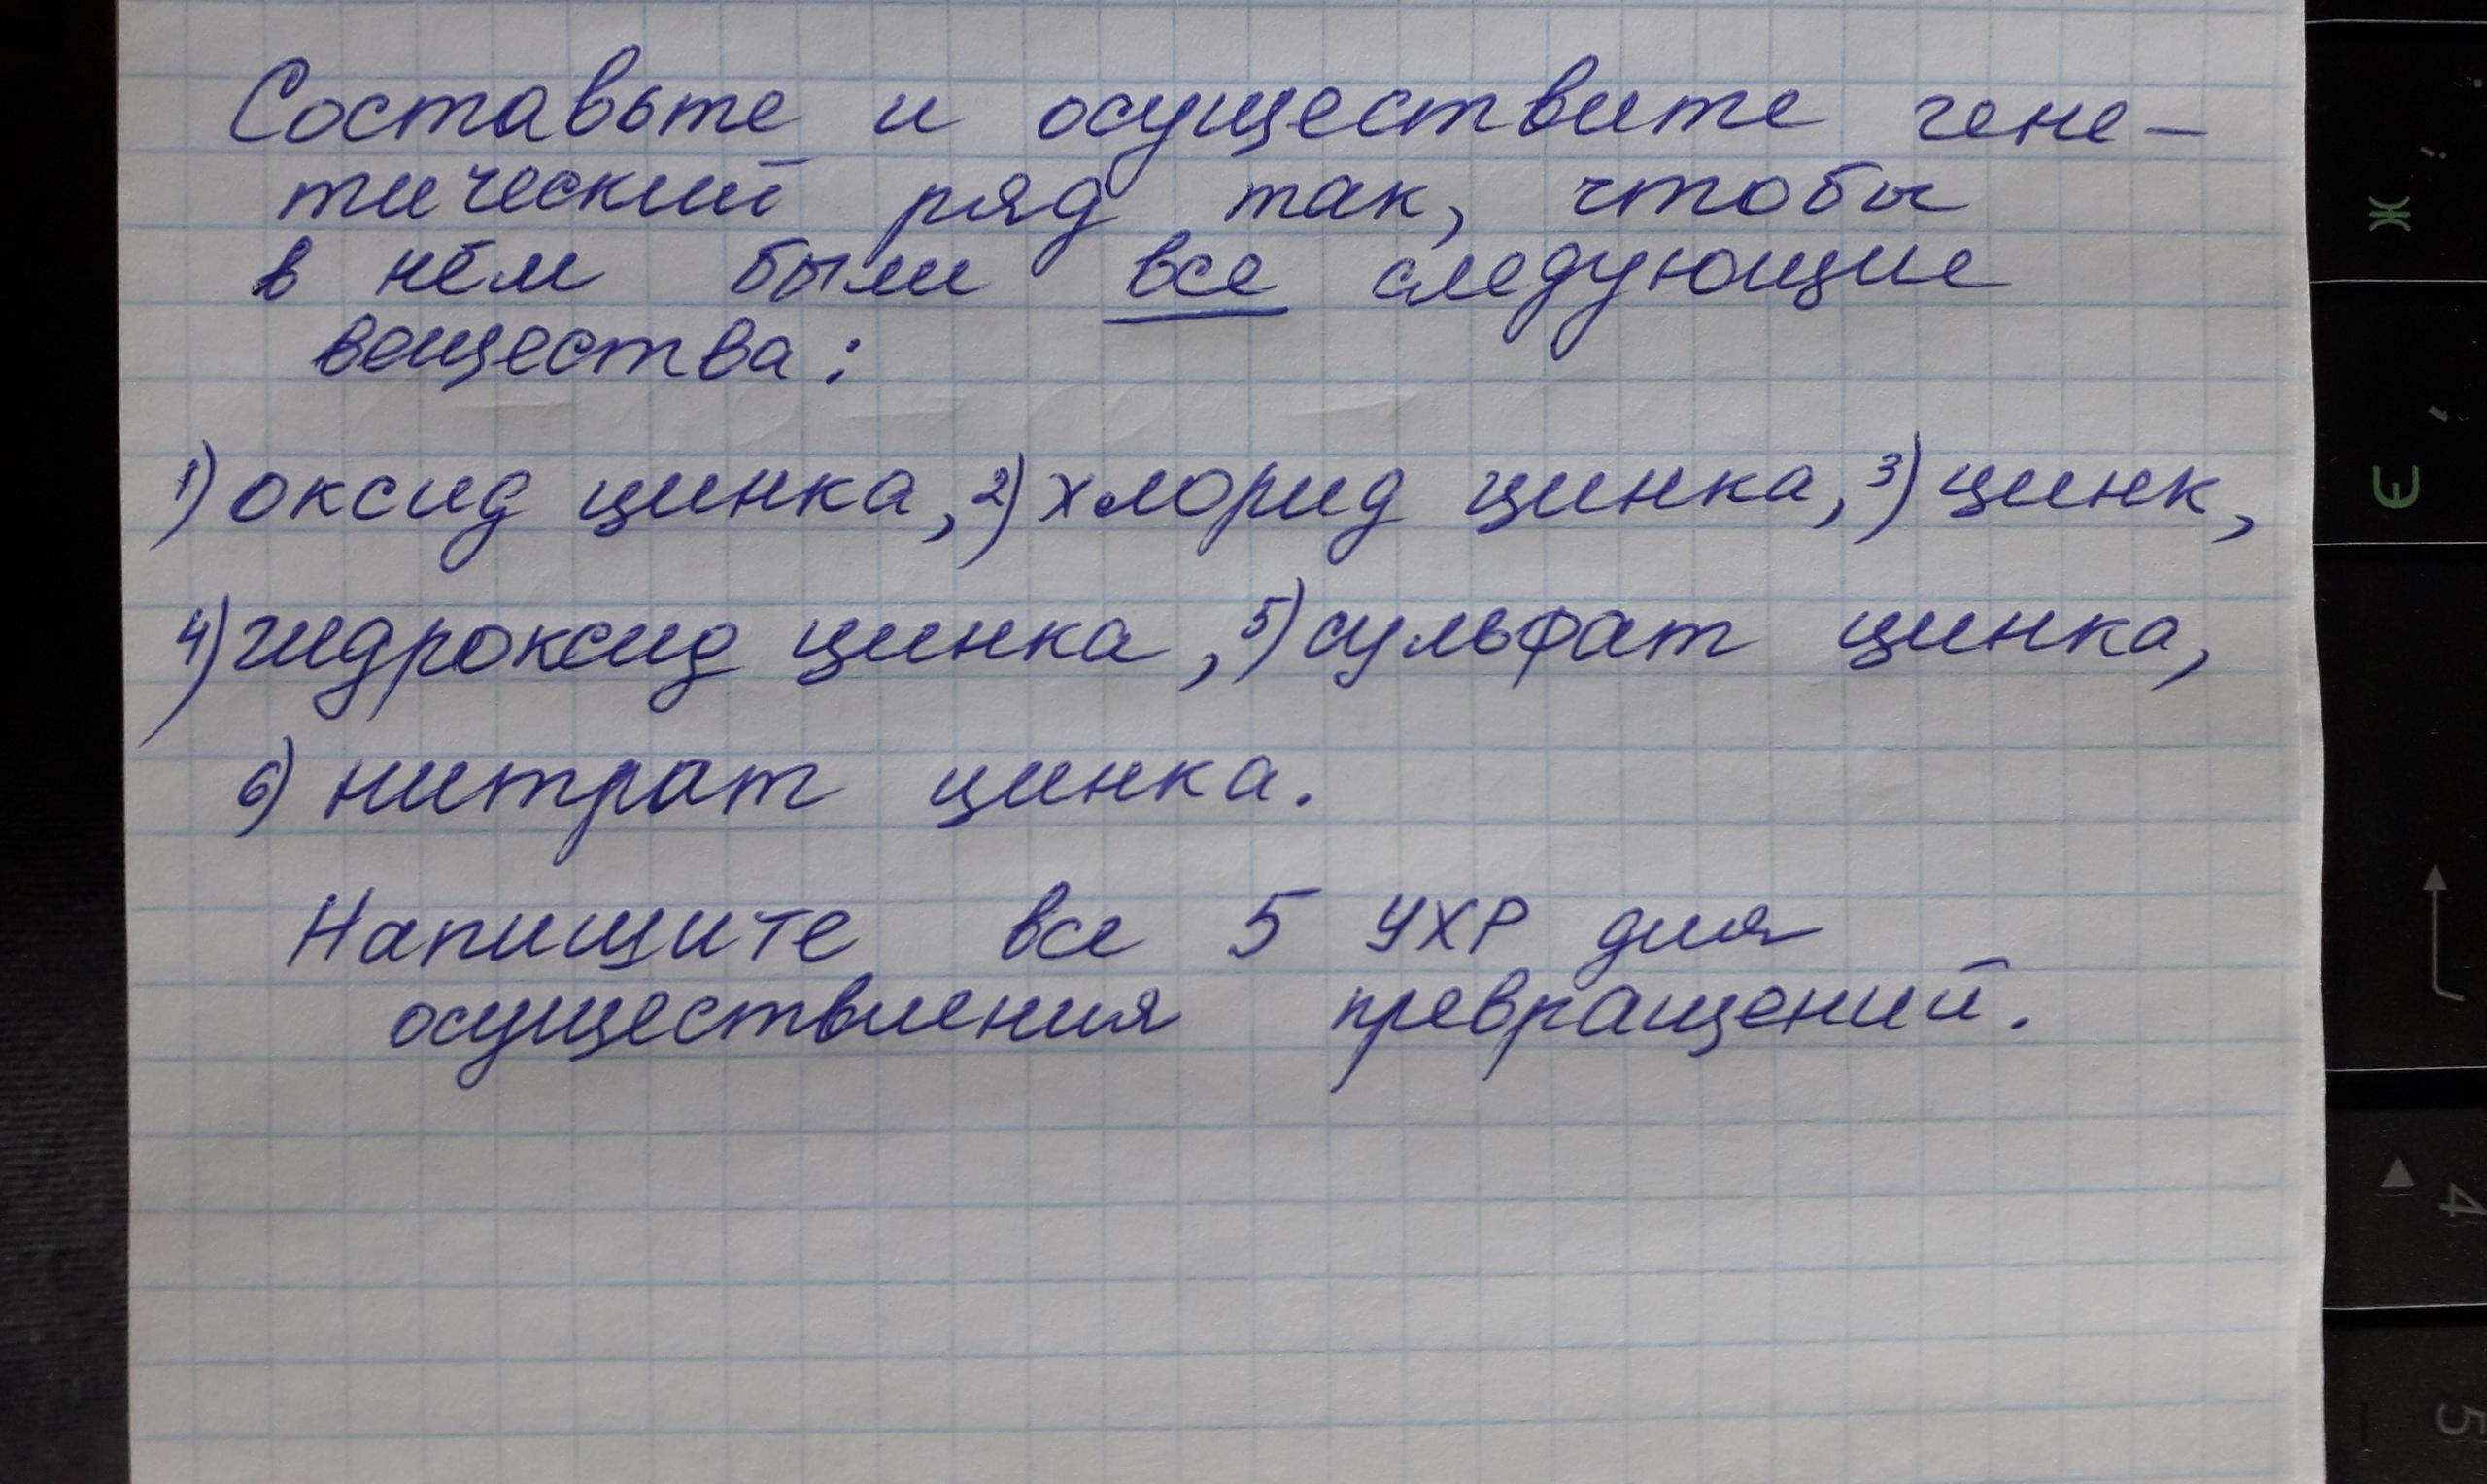 Составьте и осуществите гене-
тический ряд так, чтобы
в нём были все следующие
вещества:
1) оксид цинка, 2) хлорид цинка, 3) цинк,
4) гидроксид цинка, 5) сульфат цинка,
6) нитрат цинка.
Напишите все 5 УХР для
осуществления превращений.
Ж ;
Є ,
4
5